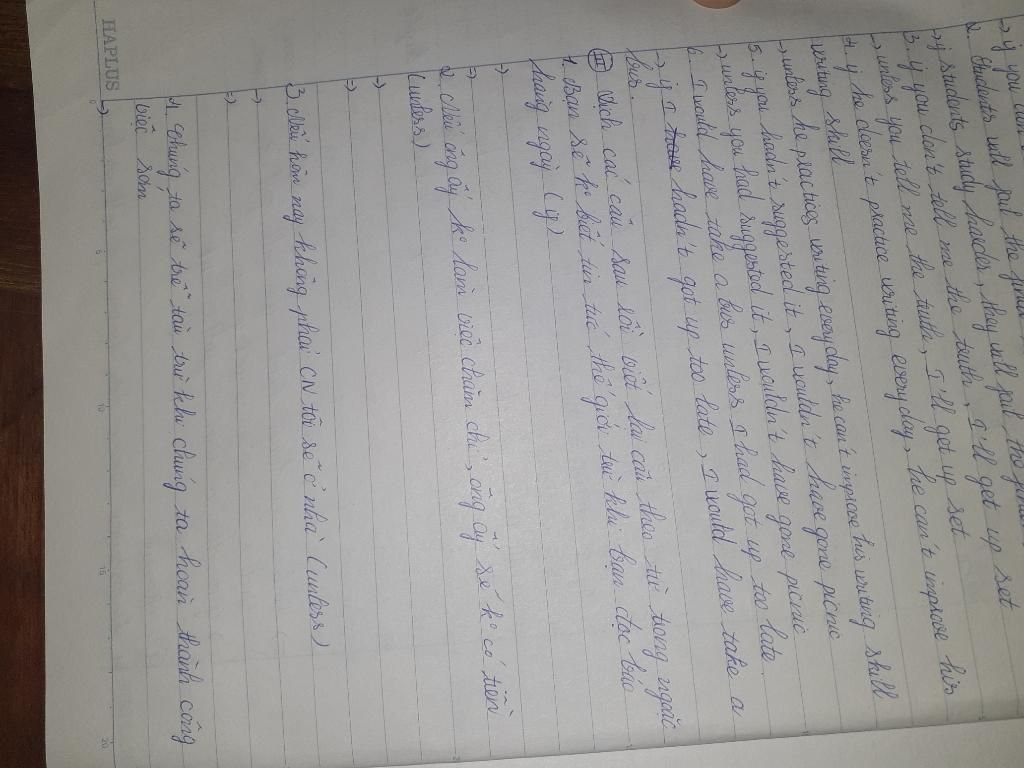 HAPLUS
→ if you can't
2. Students will fail the final
→ if students study harder, they will fail the final
3. if you don't tell me the truth, I'll get up set
→ unless you tell me the truth, I'll get up set
4. if he doesn't practice writing every day, he can't improve his
writing skill
→ unless he practices writing everyday, he can't improve his writing skill
5. if you hadn't suggested it, I wouldn't have gone picnic
→ unless you had suggested it, I wouldn't have gone picnic
6. I would have take a bus unless I had got up to late
→ if I hadn't got up too late, I would have take a
bus.
III Dịch các câu sau rồi viết lại câu theo từ trong ngoặc
1. Bạn sẽ ko biết tin tức thế giới trừ khi bạn đọc báo
hằng ngày (if)
→
→
2. Nếu ông ấy ko làm việc chăm chỉ, ông ấy sẽ ko có tiền
(unless)
→
→
3. Nếu hôm nay không phải CN tôi sẽ ở nhà (unless)
→
→
4. Chúng ta sẽ trễ tàu trừ khi chúng ta hoàn thành công
việc sớm
→
0
5
10
15
20